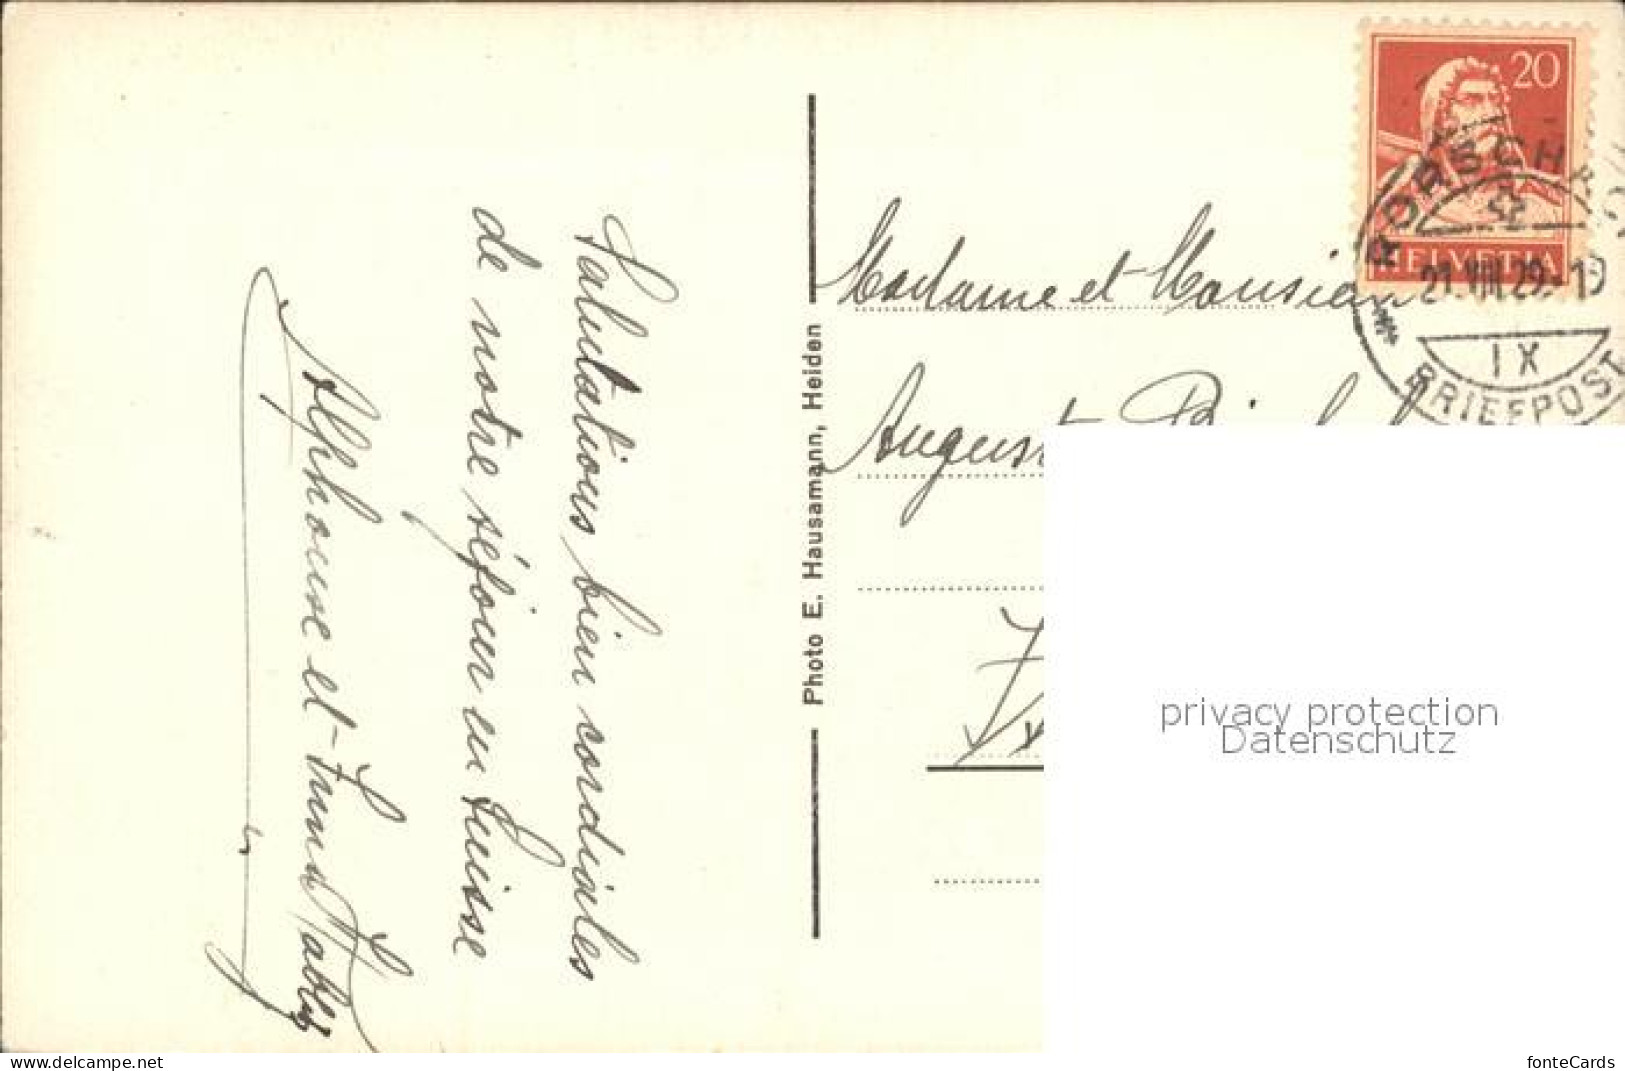 Salutations bien cordiales
de notre séjour en Suisse
Alphonse et
Photo E. Hausamann, Heiden
Madame et Monsieur
August
20
HELVETIA
RORSCHACH
21.VIII.29.-19
IX
BRIEFPOST
privacy protection
Datenschutz
www.delcampe.net
fonteCards